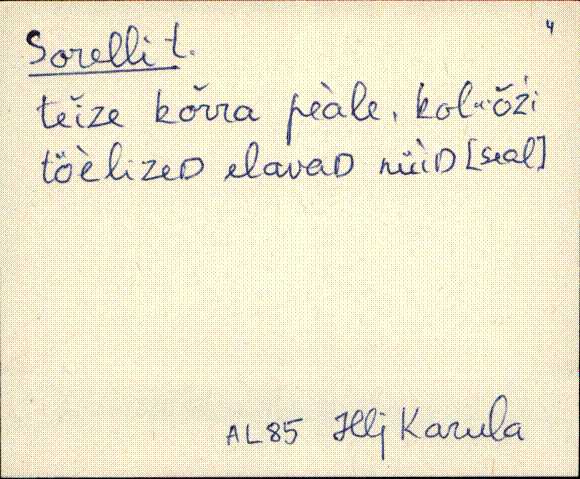 4
Sorelli t.
teize kõrra pèàle, kolɯõźi
tööèlizeD elavaD nüìD [seal]
AL85 Hlj Karula